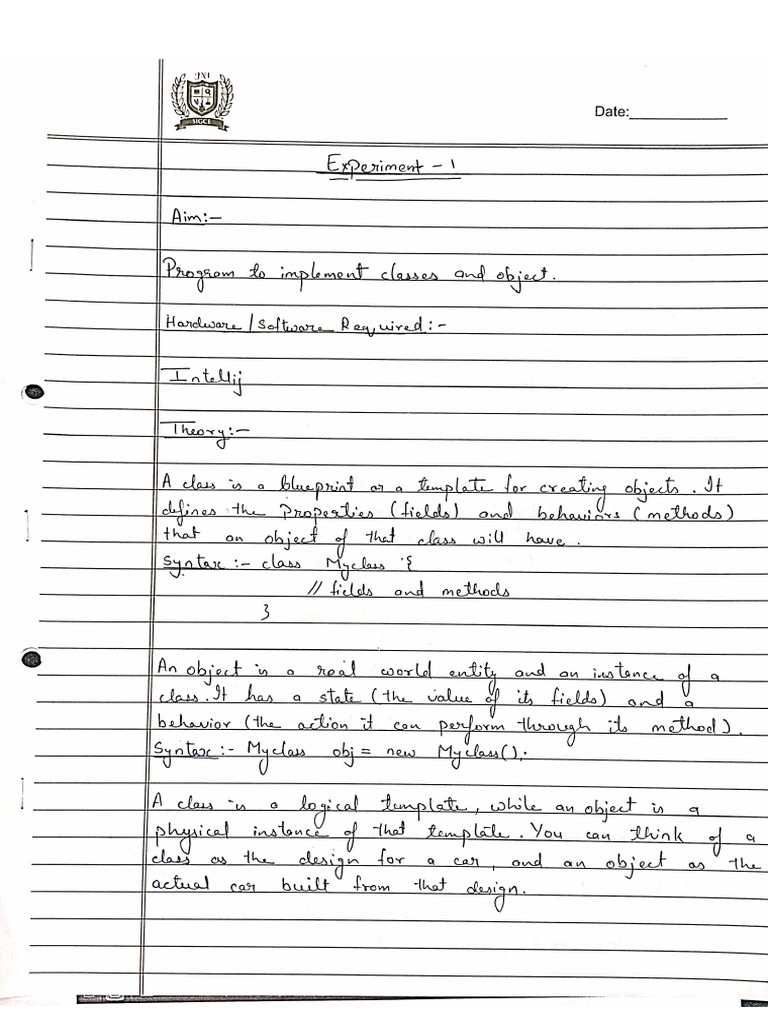 JNI
SIGCE
Date:
Experiment - 1
Aim:-
Program to implement classes and object.
Hardware / Software Required:-
Intellij
Theory:-
A class is a blueprint or a template for creating objects. It
defines the Properties (fields) and behaviors (methods)
that an object of that class will have.
Syntax :- class Myclass {
// fields and methods
}
An object is a real world entity and an instance of a
class. It has a state (the value of its fields) and a
behavior (the action it can perform through its method).
Syntax :- Myclass obj = new Myclass();
A class is a logical template, while an object is a
physical instance of that template. You can think of a
class as the design for a car, and an object as the
actual car built from that design.